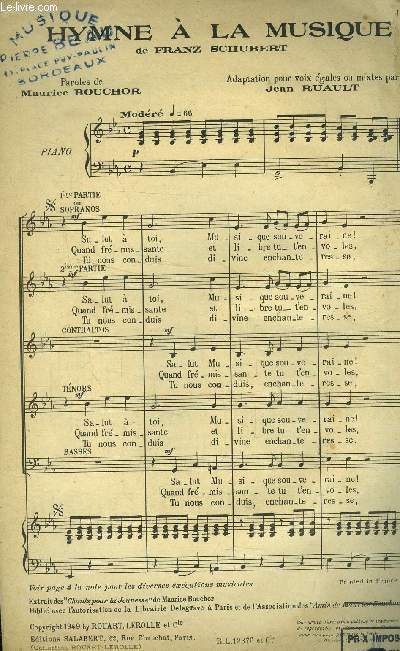 MUSIQUE
PIERRE BEAU
PLACE PEY-PAULIN
BORDEAUX
HYMNE À LA MUSIQUE
de FRANZ SCHUBERT
Paroles de
Maurice BOUCHOR
Adaptation pour voix égales ou mixtes par
Jean RUAULT
Modéré ♩=66
PIANO
p
1ère PARTIE
ou
SOPRANOS
mf
Sa_lut à toi, Mu_si_que sou_ve_rai_ne!
Quand fré_mis_sante et li_bre tu t'en vo_les,
Tu nous con_duis di_vine enchan_te_res_se,
2ème PARTIE
mf
Sa_lut à toi, Mu_si_que sou_ve_rai_ne!
Quand fré_mis_sante et li_bre tu t'en vo_les,
Tu nous con_duis di_vine enchan_te_res_se,
CONTRALTOS
mf
Sa_lut Mu_si_que sou_ve_rai_ne!
Quand fré_mis_san_te tu t'en vo_les,
Tu nous con_duis, enchan_te_res_se,
TÉNORS
mf
Sa_lut à toi, Mu_si_que sou_ve_rai_ne!
Quand fré_mis_sante et li_bre tu t'en vo_les,
Tu nous con_duis di_vine enchan_te_res_se,
BASSES
mf
Sa_lut Mu_si_que sou_ve_rai_ne!
Quand fré_mis_san_te tu t'en vo_les,
Tu nous con_duis, enchan_te_res_se,
Voir page 4 la note pour les diverses exécutions musicales
Printed in France
Extrait des "Chants pour la Jeunesse" de Maurice Bouchor
Publié avec l'autorisation de la Librairie Delagrave à Paris et de l'Association des "Amis de Maurice Bouchor"
Copyright 1949 by ROUART, LEROLLE et Cie
Editions SALABERT, 22, Rue Chauchat, Paris.
(Collection ROUART-LEROLLE)
R.L. et Cie
PRIX IMPOS